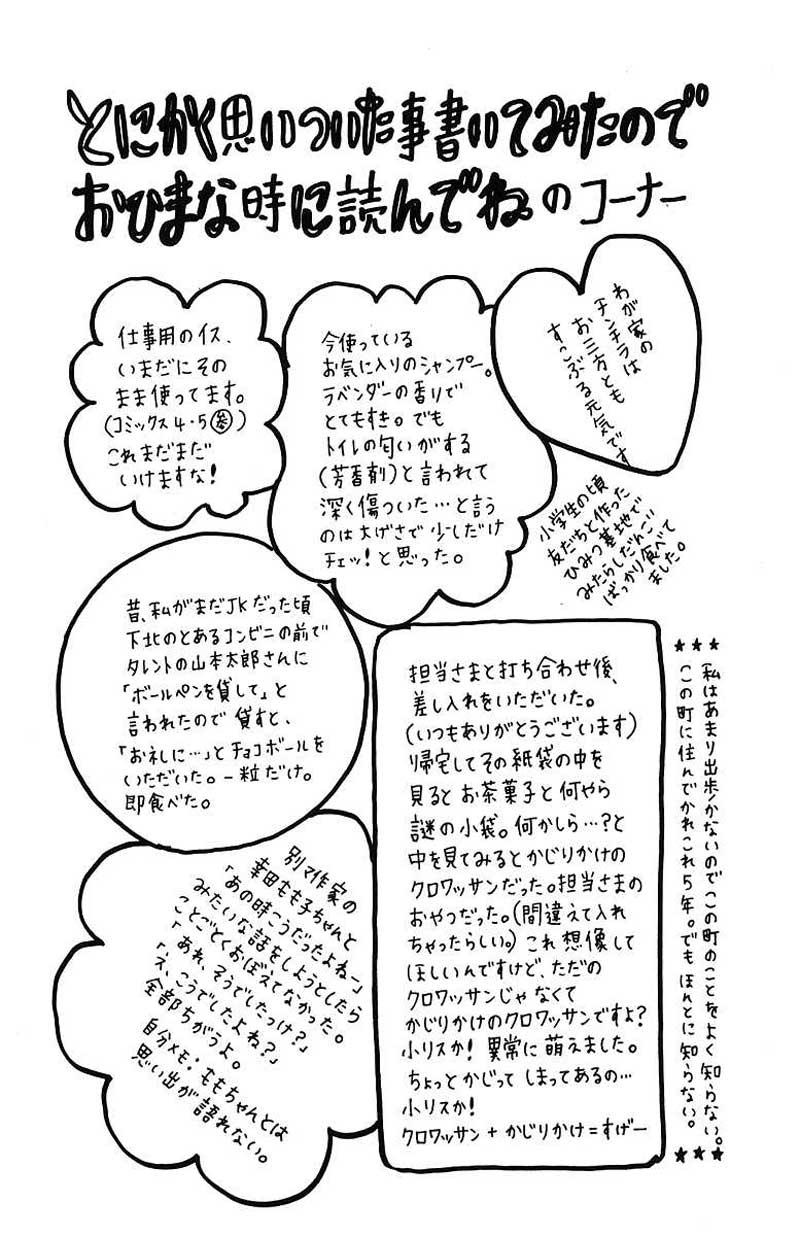 とにかく思いついた事書いてみたので
おひまな時に読んでね。のコーナー
仕事用のイス、
いまだにその
まま使ってます。
(コミックス4・5参)
これまだまだ
いけますな!
今使っている
お気に入りのシャンプー。
ラベンダーの香りで
とてもすき。でも
トイレの匂いがする
(芳香剤)と言われて
深く傷ついた…と言う
のは大げさで少しだけ
チェッ!と思った。
わが家の
チンチラは
お三方とも
すこぶる元気です
小学生の頃
友だちと作った
ひみつ基地で
みたらしだんご
ばっかり食べて
ました。
昔、私がまだJKだった頃
下北のとあるコンビニの前で
タレントの山本太郎さんに
「ボールペンを貸して」と
言われたので貸すと、
「お礼に…」とチョコボールを
いただいた。一粒だけ。
即食べた。
担当さまと打ち合わせ後、
差し入れをいただいた。
(いつもありがとうございます)
帰宅してその紙袋の中を
見るとお茶菓子と何やら
謎の小袋。何かしら…?と
中を見てみるとかじりかけの
クロワッサンだった。担当さまの
おやつだった。(間違えて入れ
ちゃったらしい。)これ想像して
ほしいんですけど、ただの
クロワッサンじゃなくて
かじりかけのクロワッサンですよ?
小リスか!異常に萌えました。
ちょっとかじってしまってあるの…
小リスか!
クロワッサン+かじりかけ=すげー
★★★私はあまり出歩かないのでこの町のことをよく知らない。
この町に住んでかれこれ5年。でもほんとに知らない。★★★
別マ作家の
幸田もも子ちゃんと
「あの時こうだったよねー」
みたいな話をしようとしたら
ことごとくおぼえてなかった。
「あれ、そうでしたっけ?」
「え、こうでしたよね?」
全部ちがうよ。
自分メモ・ももちゃんとは
思い出が語れない。